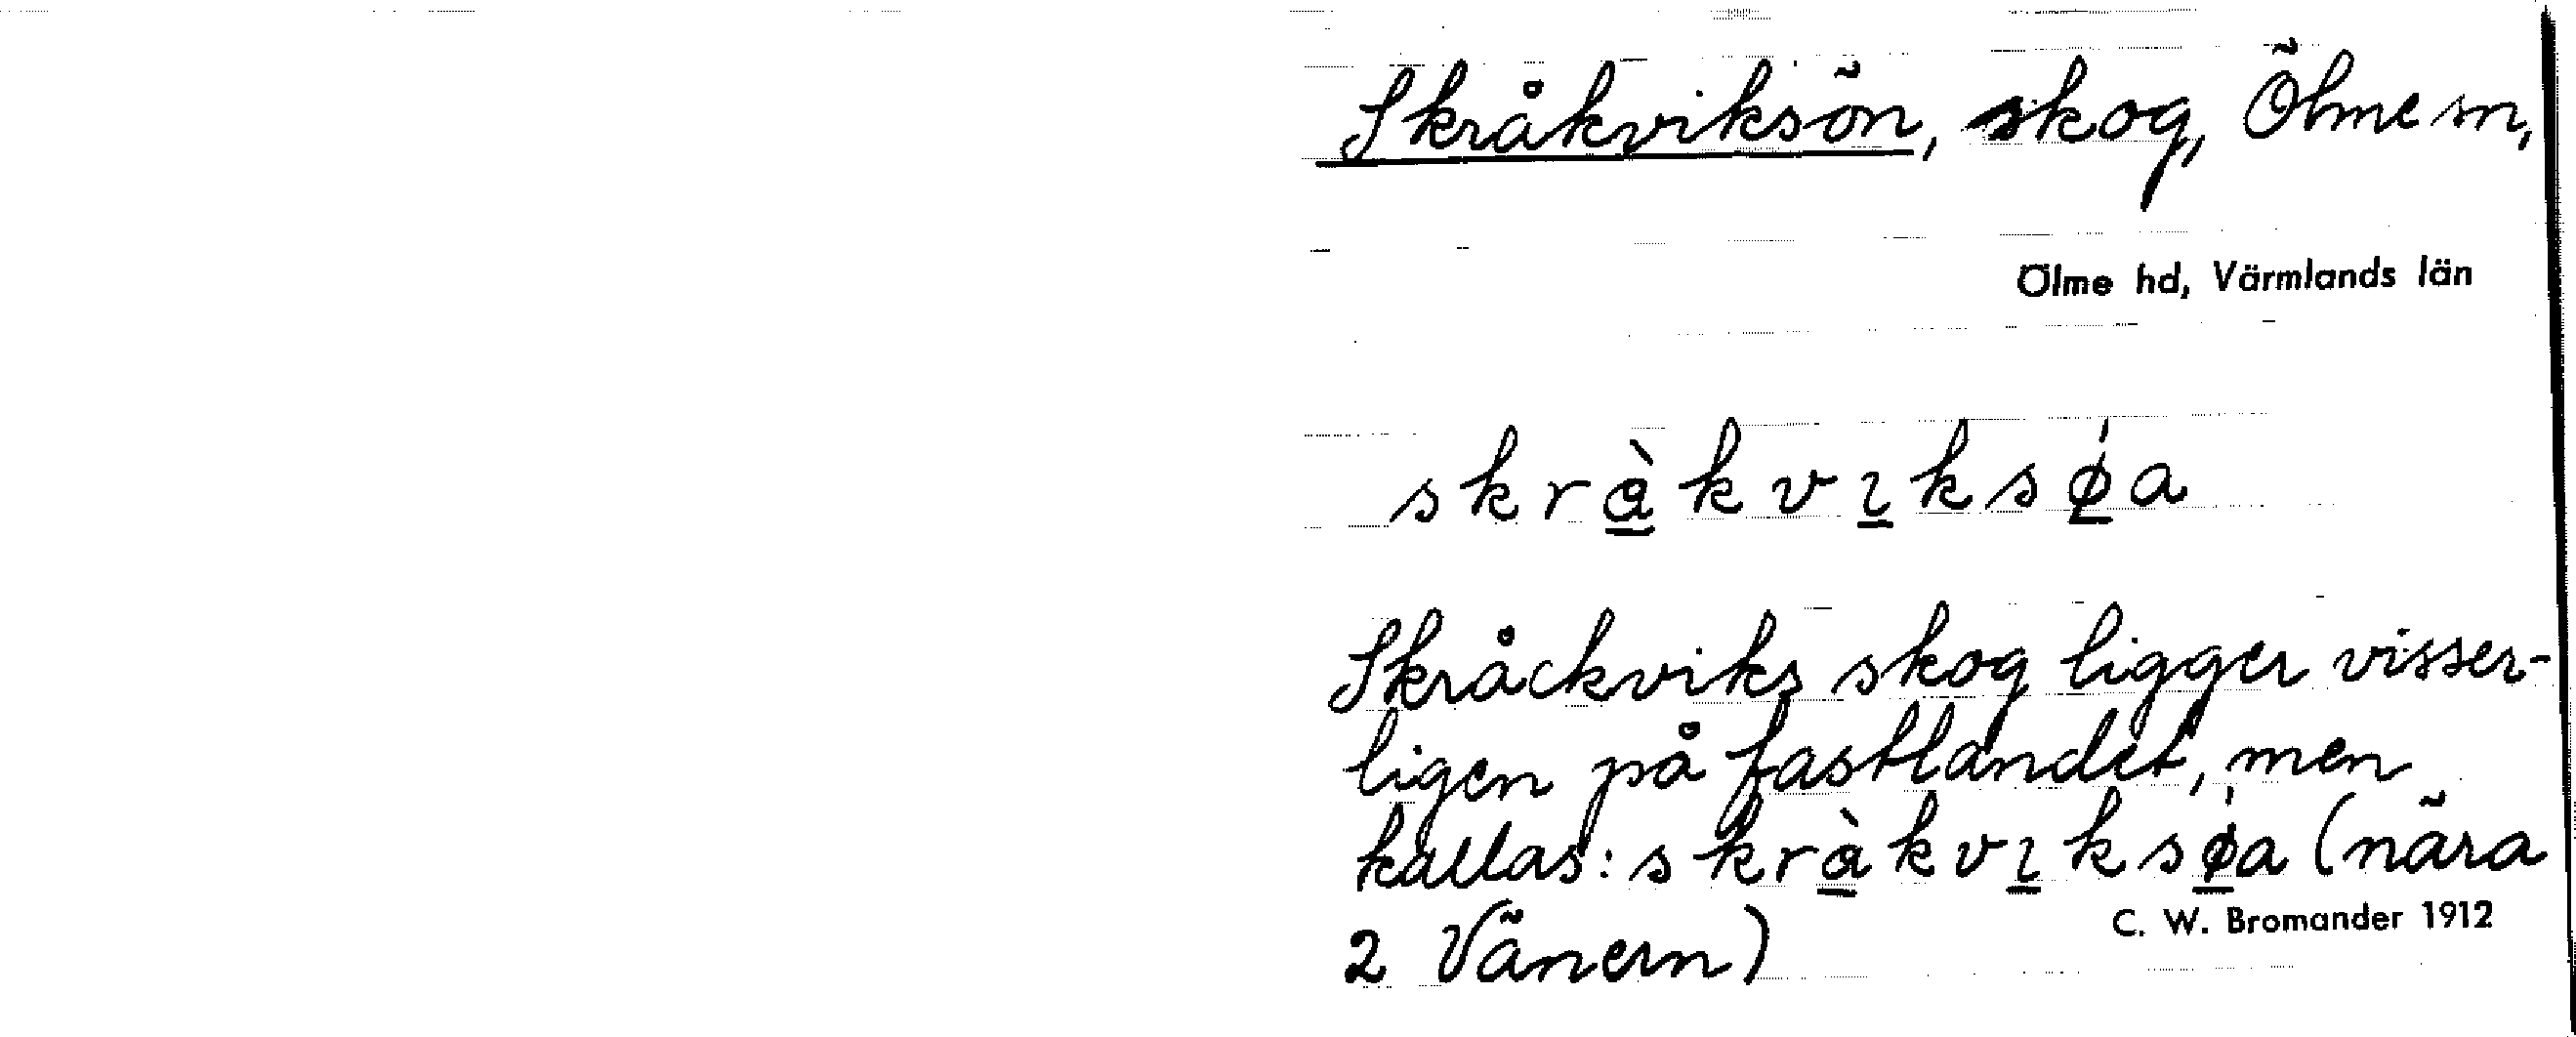 Skråkviksön, skog, Ölme sn,
Ölme hd, Värmlands län
skràkvıksǿa
Skråckviks skog ligger visser-
ligen på fastlandet, men
kallas: skràkvıksǿa (nära
2 Vänern)
C. W. Bromander 1912